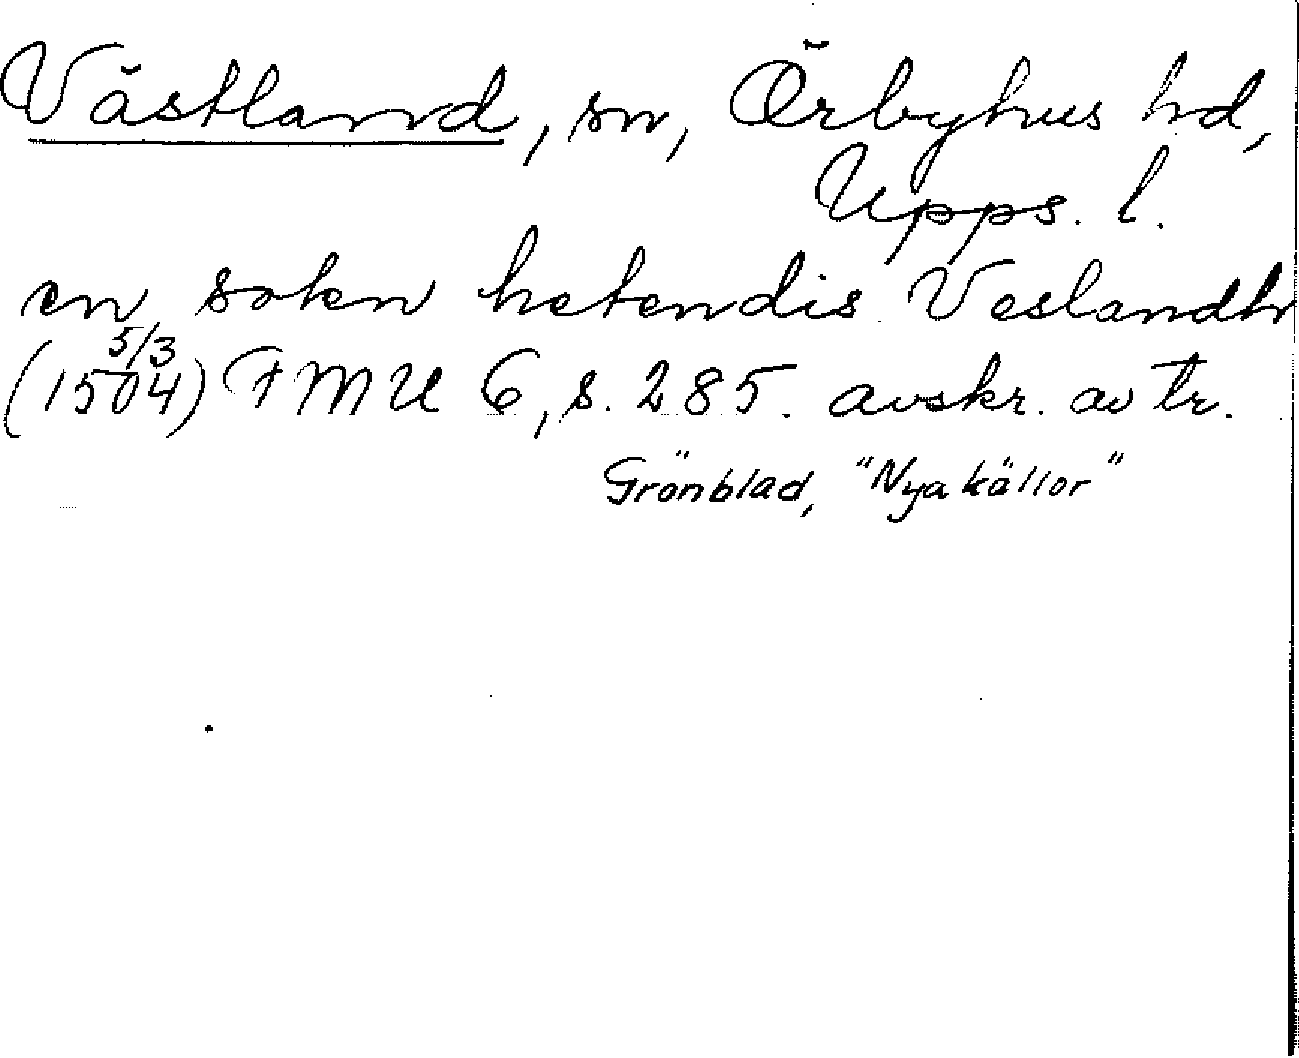 Västland, sn, Örbyhus hd,
Upps. l.
en soken hetendis Veslandh
(1504) 5/3 FMU 6, s. 285. avskr. av tr.
Grönblad, "Nya källor"